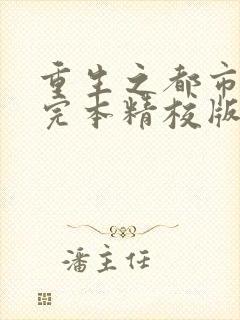 重生之都市
完本精校版
潘主任